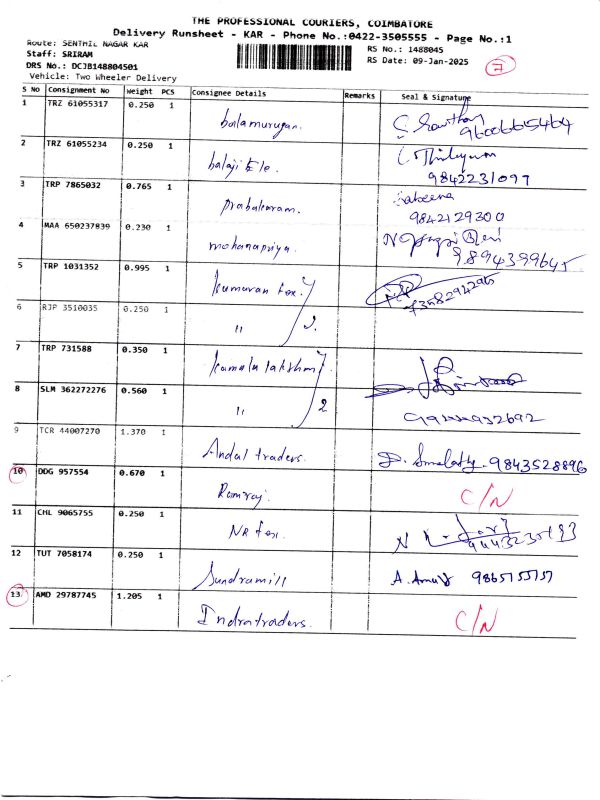 THE PROFESSIONAL COURIERS, COIMBATORE
Delivery Runsheet - KAR - Phone No.:0422-3505555 - Page No.:1
Route: SENTHIL NAGAR KAR
RS No.: 1488045
Staff: SRIRAM
RS Date: 09-Jan-2025
7
DRS No.: DCJB148804501
Vehicle: Two Wheeler Delivery
S No Consignment No Weight PCS Consignee Details Remarks Seal & Signature
1 TRZ 61055317 0.250 1 balamurugan.
9600665464
2 TRZ 61055234 0.250 1 balaji Ele.
9842231097
3 TRP 7865032 0.765 1 prabakaram.
9842129300
4 MAA 650237839 0.230 1 mohanapriya.
9894399645.
5 TRP 1031352 0.995 1 kumaran tex.
7358294295
6 RJP 3510035 0.250 1 " 2.
7 TRP 731588 0.350 1 kamala lakshmi
8 SLM 362272276 0.560 1 " 2
9 TCR 44007270 1.370 1 Andal traders.
9843528896
10 DDG 957554 0.670 1 Ramraj. C/N
11 CHL 9065755 0.250 1 NR tex.
12 TUT 7058174 0.250 1 Sundramill
13 AMD 29787745 1.205 1 Indratraders. C/N